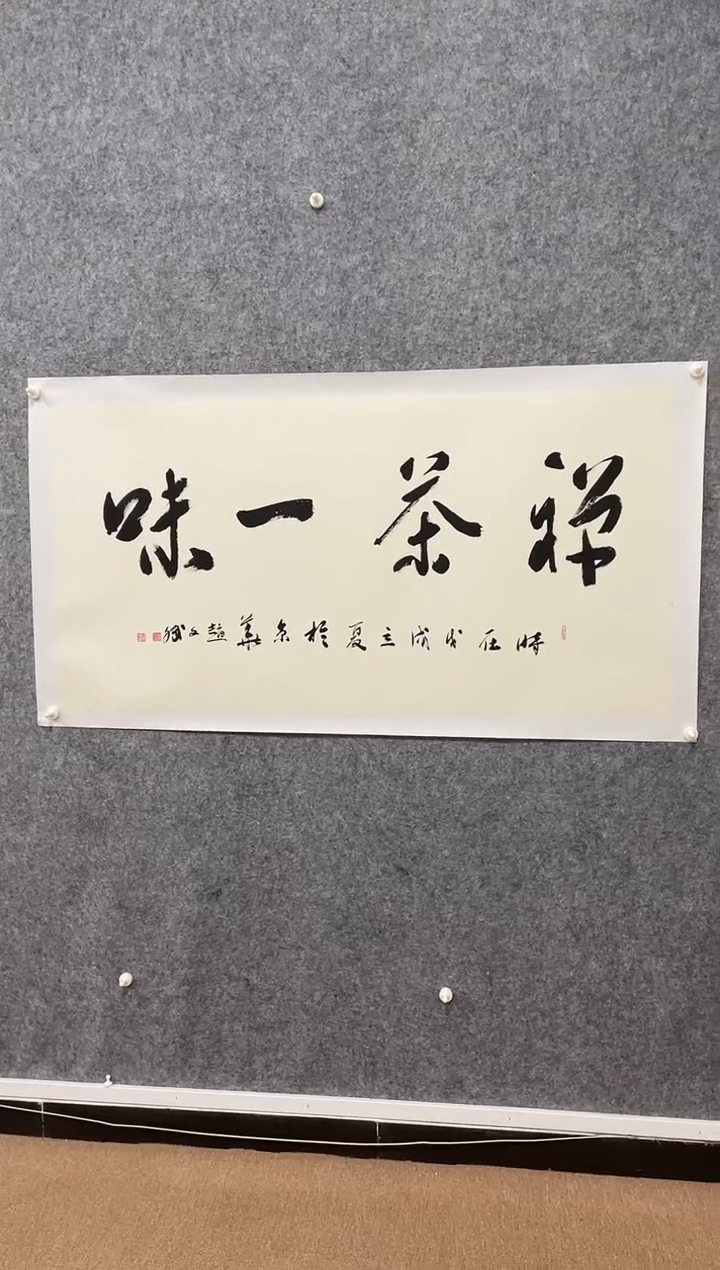 禅茶一味
時在戊戌立夏於京華趙文斌